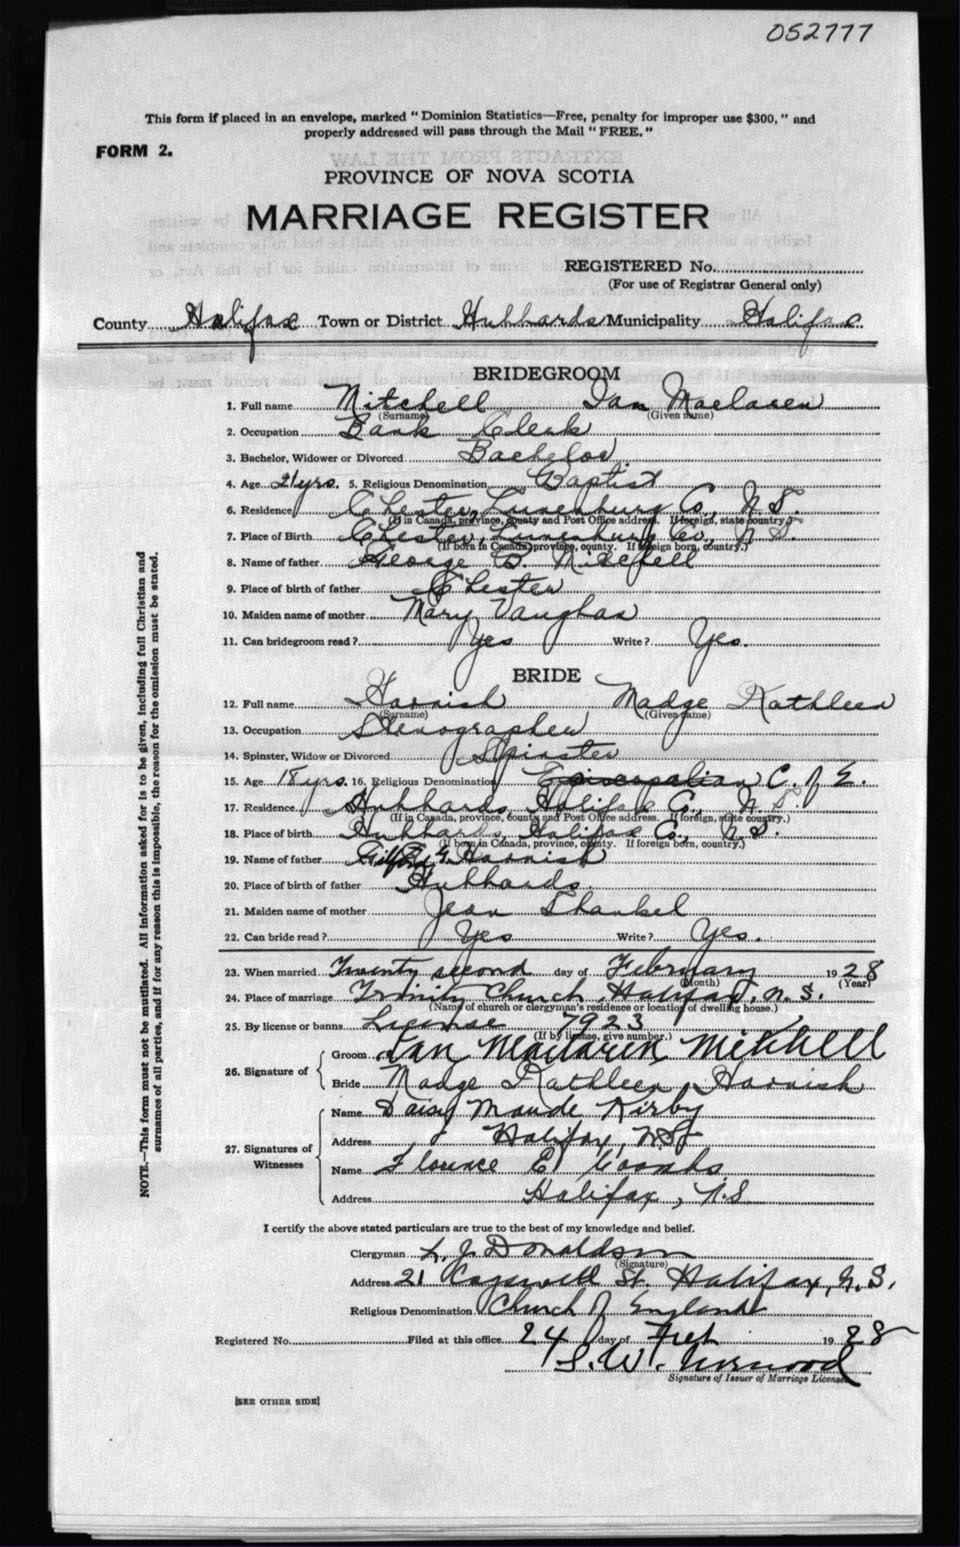 052777
This form if placed in an envelope, marked "Dominion Statistics—Free, penalty for improper use $300," and
properly addressed will pass through the Mail "FREE."
FORM 2.
PROVINCE OF NOVA SCOTIA
MARRIAGE REGISTER
REGISTERED No.
(For use of Registrar General only)
County Halifax Town or District Hubbards Municipality Halifax
BRIDEGROOM
1. Full name Mitchell Ian Maclaren
(Surname) (Given name)
2. Occupation Bank Clerk
3. Bachelor, Widower or Divorced Bachelor
4. Age 21 yrs. 5. Religious Denomination Baptist
6. Residence Chester, Lunenburg Co., N. S.
(If in Canada, province, county and Post Office address. If foreign, state country.)
7. Place of Birth Chester, Lunenburg Co., N. S.
(If born in Canada, province, county. If foreign born, country.)
8. Name of father George B. Mitchell
9. Place of birth of father Chester
10. Maiden name of mother Mary Vaughan
11. Can bridegroom read? Yes Write? Yes.
BRIDE
12. Full name Harnish Madge Kathleen
(Surname) (Given name)
13. Occupation Stenographer
14. Spinster, Widow or Divorced Spinster
15. Age 18 yrs. 16. Religious Denomination Episcopalian C. of E.
17. Residence Hubbards, Halifax Co., N. S.
(If in Canada, province, county and Post Office address. If foreign, state country.)
18. Place of birth Hubbards, Halifax Co., N. S.
(If born in Canada, province, county. If foreign born, country.)
19. Name of father Harnish
20. Place of birth of father Hubbards
21. Maiden name of mother Jean Shankel
22. Can bride read? Yes Write? Yes.
23. When married Twenty second day of February 1928
(Month) (Year)
24. Place of marriage Trinity Church, Halifax, N. S.
(Name of church or clergyman's residence or location of dwelling house.)
25. By license or banns License 7923
(If by license, give number.)
26. Signature of Groom Ian Maclaren Mitchell
Bride Madge Kathleen Harnish
27. Signatures of Witnesses Name Daisy Maude Kirby
Address Halifax, N.S.
Name Florence E. Coombs
Address Halifax, N.S
I certify the above stated particulars are true to the best of my knowledge and belief.
Clergyman L. J. Donaldson
(Signature)
Address 21 Cogswell St. Halifax, N. S.
Religious Denomination Church of England
Registered No. Filed at this office 24 day of Feb 1928
S. W. Norwood
Signature of Issuer of Marriage Licenses
[SEE OTHER SIDE]
NOTE.—This form must not be mutilated. All information asked for is to be given, including full Christian and
surnames of all parties, and if for any reason this is impossible, the reason for the omission must be stated.